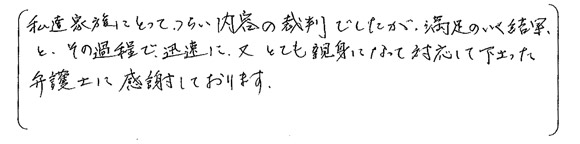 私達家族にとって、つらい内容の裁判でしたが、満足のいく結果、
と、その過程で、迅速に、又とても親身になって対応して下さった
弁護士に感謝しております。